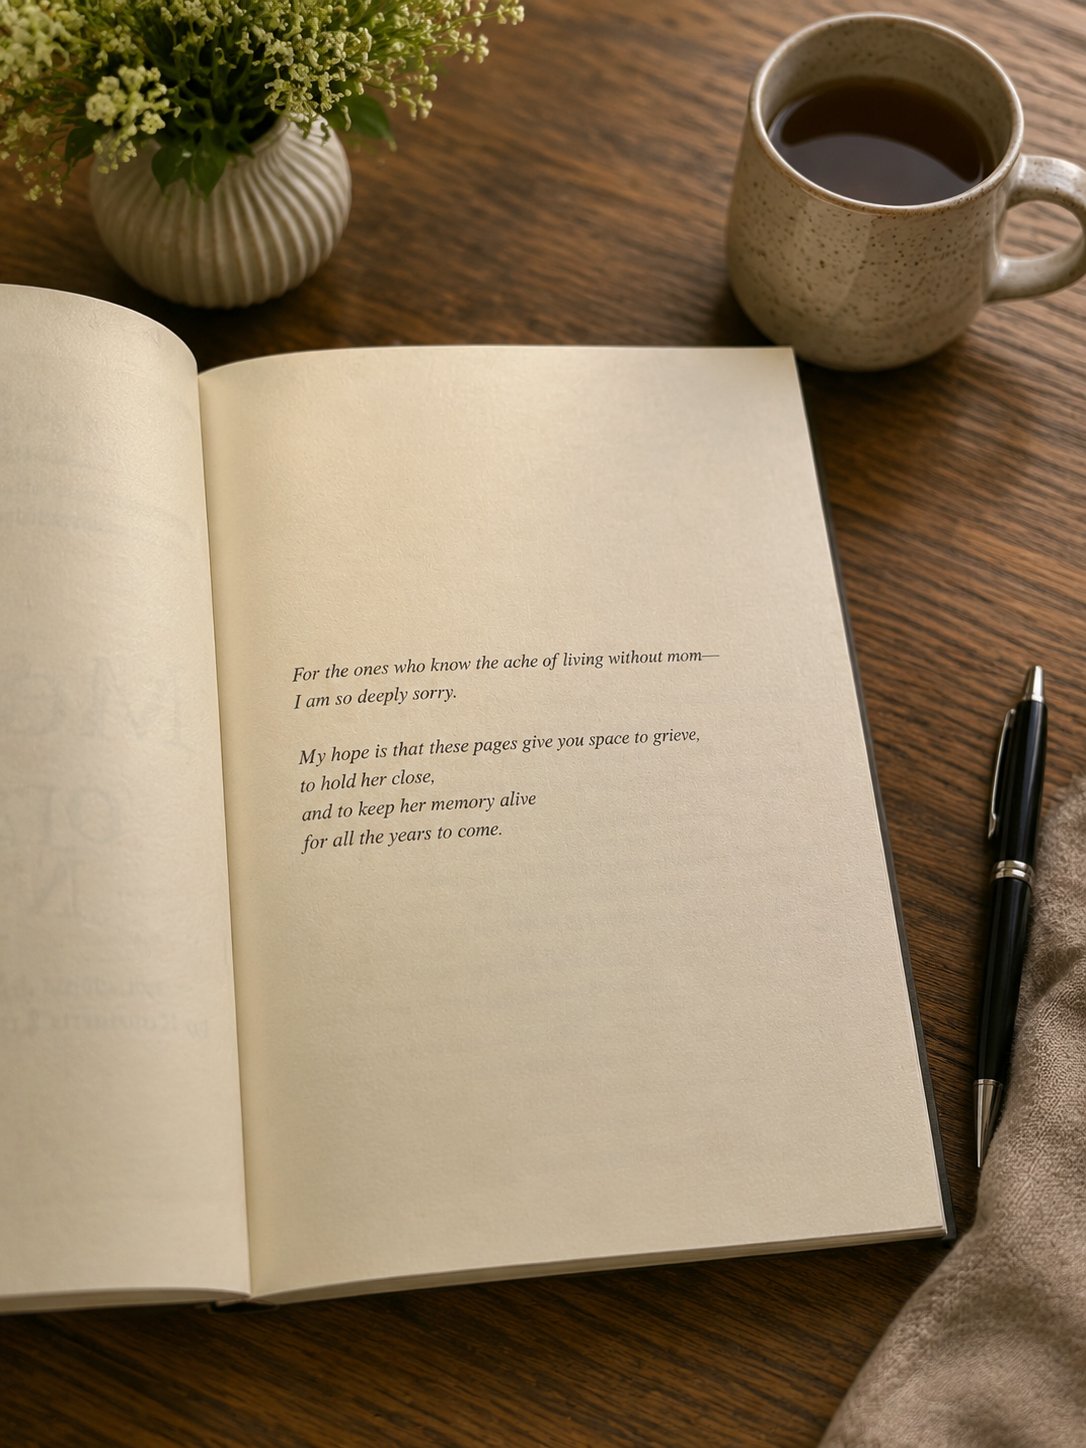 For the ones who know the ache of living without mom—
I am so deeply sorry.
My hope is that these pages give you space to grieve,
to hold her close,
and to keep her memory alive
for all the years to come.